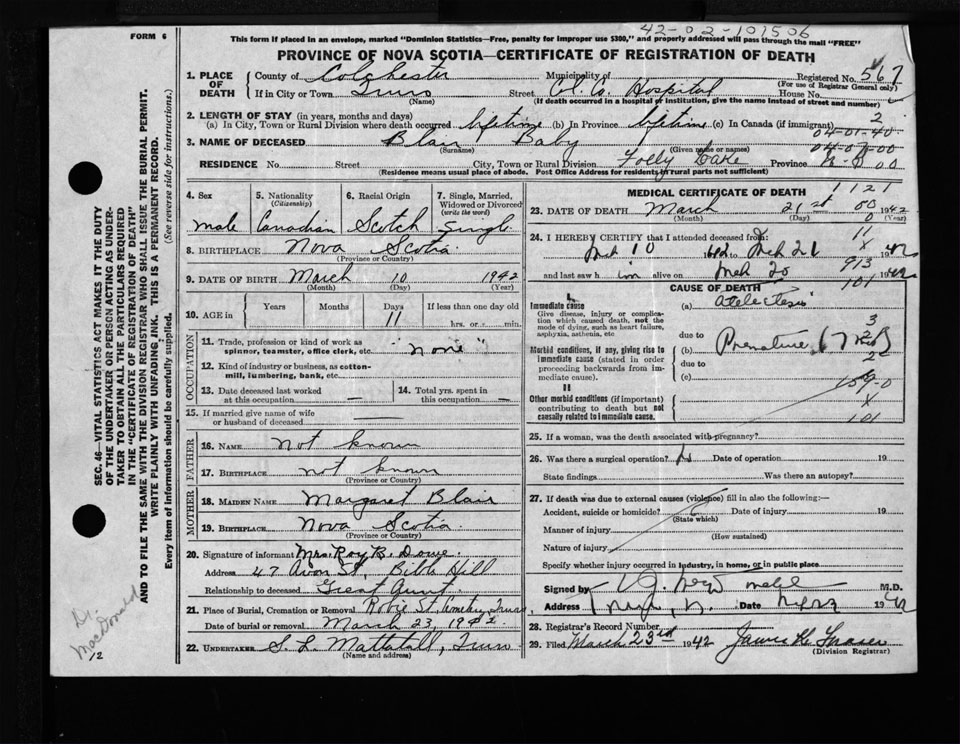 42-02-107506
FORM 6
This form if placed in an envelope, marked "Dominion Statistics—Free, penalty for improper use $300," and properly addressed will pass through the mail "FREE"
PROVINCE OF NOVA SCOTIA—CERTIFICATE OF REGISTRATION OF DEATH
1. PLACE OF DEATH { County of Colchester Municipality of Registered No. 567
(For use of Registrar General only)
If in City or Town Truro Street Col. Co. Hospital House No.
(Name) (If death occurred in a hospital or institution, give the name instead of street and number)
2. LENGTH OF STAY (in years, months and days)
(a) In City, Town or Rural Division where death occurred lifetime (b) In Province lifetime (c) In Canada (if immigrant) 2
04-01-40
3. NAME OF DECEASED Blair Baby
(Surname) (Given name or names)
RESIDENCE No. Street City, Town or Rural Division Folly Lake Province N-S 00
(Residence means usual place of abode. Post Office Address for residents in rural parts not sufficient)
4. Sex male
5. Nationality (Citizenship) Canadian
6. Racial Origin Scotch
7. Single, Married, Widowed or Divorced (write the word) Single
8. BIRTHPLACE Nova Scotia
(Province or Country)
9. DATE OF BIRTH March 10 1942
(Month) (Day) (Year)
10. AGE in { Years Months Days 11 If less than one day old
hrs. or min.
OCCUPATION
11. Trade, profession or kind of work as spinner, teamster, office clerk, etc. "none"
12. Kind of industry or business, as cotton-mill, lumbering, bank, etc.
13. Date deceased last worked at this occupation —
14. Total yrs. spent in this occupation —
15. If married give name of wife or husband of deceased —
FATHER
16. NAME not known
17. BIRTHPLACE not known
(Province or Country)
MOTHER
18. MAIDEN NAME Margaret Blair
19. BIRTHPLACE Nova Scotia
(Province or Country)
20. Signature of informant Mrs. Roy B. Dowe.
Address 47 Avon St, Bible Hill
Relationship to deceased Great Aunt
21. Place of Burial, Cremation or Removal Robie St. Cemetery, Truro
Date of burial or removal March 23, 1942.
22. UNDERTAKER S. L. Mattatall, Truro
(Name and address)
MEDICAL CERTIFICATE OF DEATH 1121
23. DATE OF DEATH March 21st 1942
(Month) (Day) (Year)
24. I HEREBY CERTIFY that I attended deceased from:
Mch 10 1942 Mch 21 1942
and last saw him alive on Mch 20 1942
CAUSE OF DEATH
I.
Immediate cause
Give disease, injury or complication which caused death, not the mode of dying, such as heart failure, asphyxia, asthenia, etc
(a) Atelectasis
due to
Morbid conditions, if any, giving rise to immediate cause (stated in order proceeding backwards from immediate cause).
(b) Premature
due to
(c)
II
Other morbid conditions (if important) contributing to death but not causally related to immediate cause.
101
25. If a woman, was the death associated with pregnancy?
26. Was there a surgical operation? Date of operation 19
State findings Was there an autopsy?
27. If death was due to external causes (violence) fill in also the following:—
Accident, suicide or homicide? Date of injury 19
(State which)
Manner of injury
(How sustained)
Nature of injury
Specify whether injury occurred in industry, in home, or in public place
Signed by M.D.
Address Date 1942
28. Registrar's Record Number
29. Filed March 23rd 1942
(Division Registrar)
SEC. 46—VITAL STATISTICS ACT MAKES IT THE DUTY OF THE UNDERTAKER OR PERSON ACTING AS UNDERTAKER TO OBTAIN ALL THE PARTICULARS REQUIRED IN THE "CERTIFICATE OF REGISTRATION OF DEATH" AND TO FILE THE SAME WITH THE DIVISION REGISTRAR WHO SHALL ISSUE THE BURIAL PERMIT.
WRITE PLAINLY WITH UNFADING INK. THIS IS A PERMANENT RECORD.
Every item of information should be carefully supplied. (See reverse side for instructions.)
Dr. MacDonald
12